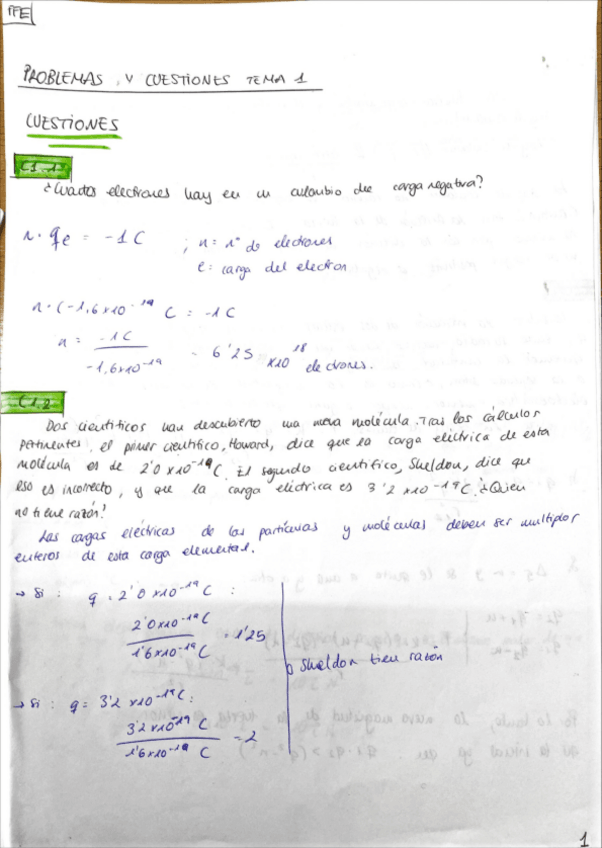 PFE
PROBLEMAS Y CUESTIONES TEMA 1
CUESTIONES
C1.1
¿Cuántos electrones hay en un culombio de carga negativa?
n · qe = -1 C ; n = nº de electrones
e: carga del electron
n · (-1,6x10^-19 C = -1C
n = -1C / -1,6x10^-19 = 6'25 x10^18 electrones.
C1.2
Dos científicos han descubierto una nueva molécula. Tras los cálculos
pertinentes, el primer científico, Howard, dice que la carga eléctrica de esta
molécula es de 2'0 x10^-19 C. El segundo científico, Sheldon, dice que
eso es incorrecto, y que la carga eléctrica es 3'2 x10^-19 C. ¿Quien
no tiene razón?
Las cargas eléctricas de las partículas y moléculas deben ser multiplos
enteros de esta carga elemental.
→ Si: q = 2'0 x10^-19 C:
2'0x10^-19 C / 1'6x10^-19 C = 1'25
Sheldon tien razón
→ Si: q = 3'2 x10^-19 C:
3'2x10^-19 C / 1'6x10^-19 C = 2
1